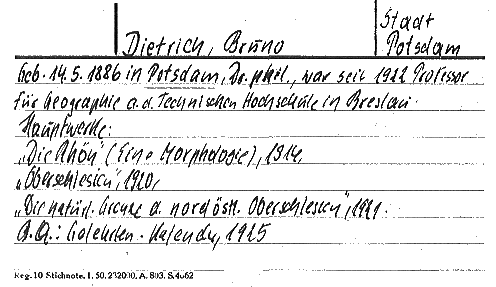 Stadt
Dietrich, Bruno Potsdam
Geb. 14.5.1886 in Potsdam, Dr. phil., war seit 1922 Professor
für Geographie a.d. Technischen Hochschule in Breslau.
Hauptwerke:
„Die Rhön" (Eine Morphologie), 1914,
„Oberschlesien", 1920,
„Die natürl. Grenze d. nordöstl. Oberschlesien", 1921.
B.A.: Gelehrten-Kalender, 1925
Reg. 10 Stichnote. I. 50. 232000. A. 803. S. 4062